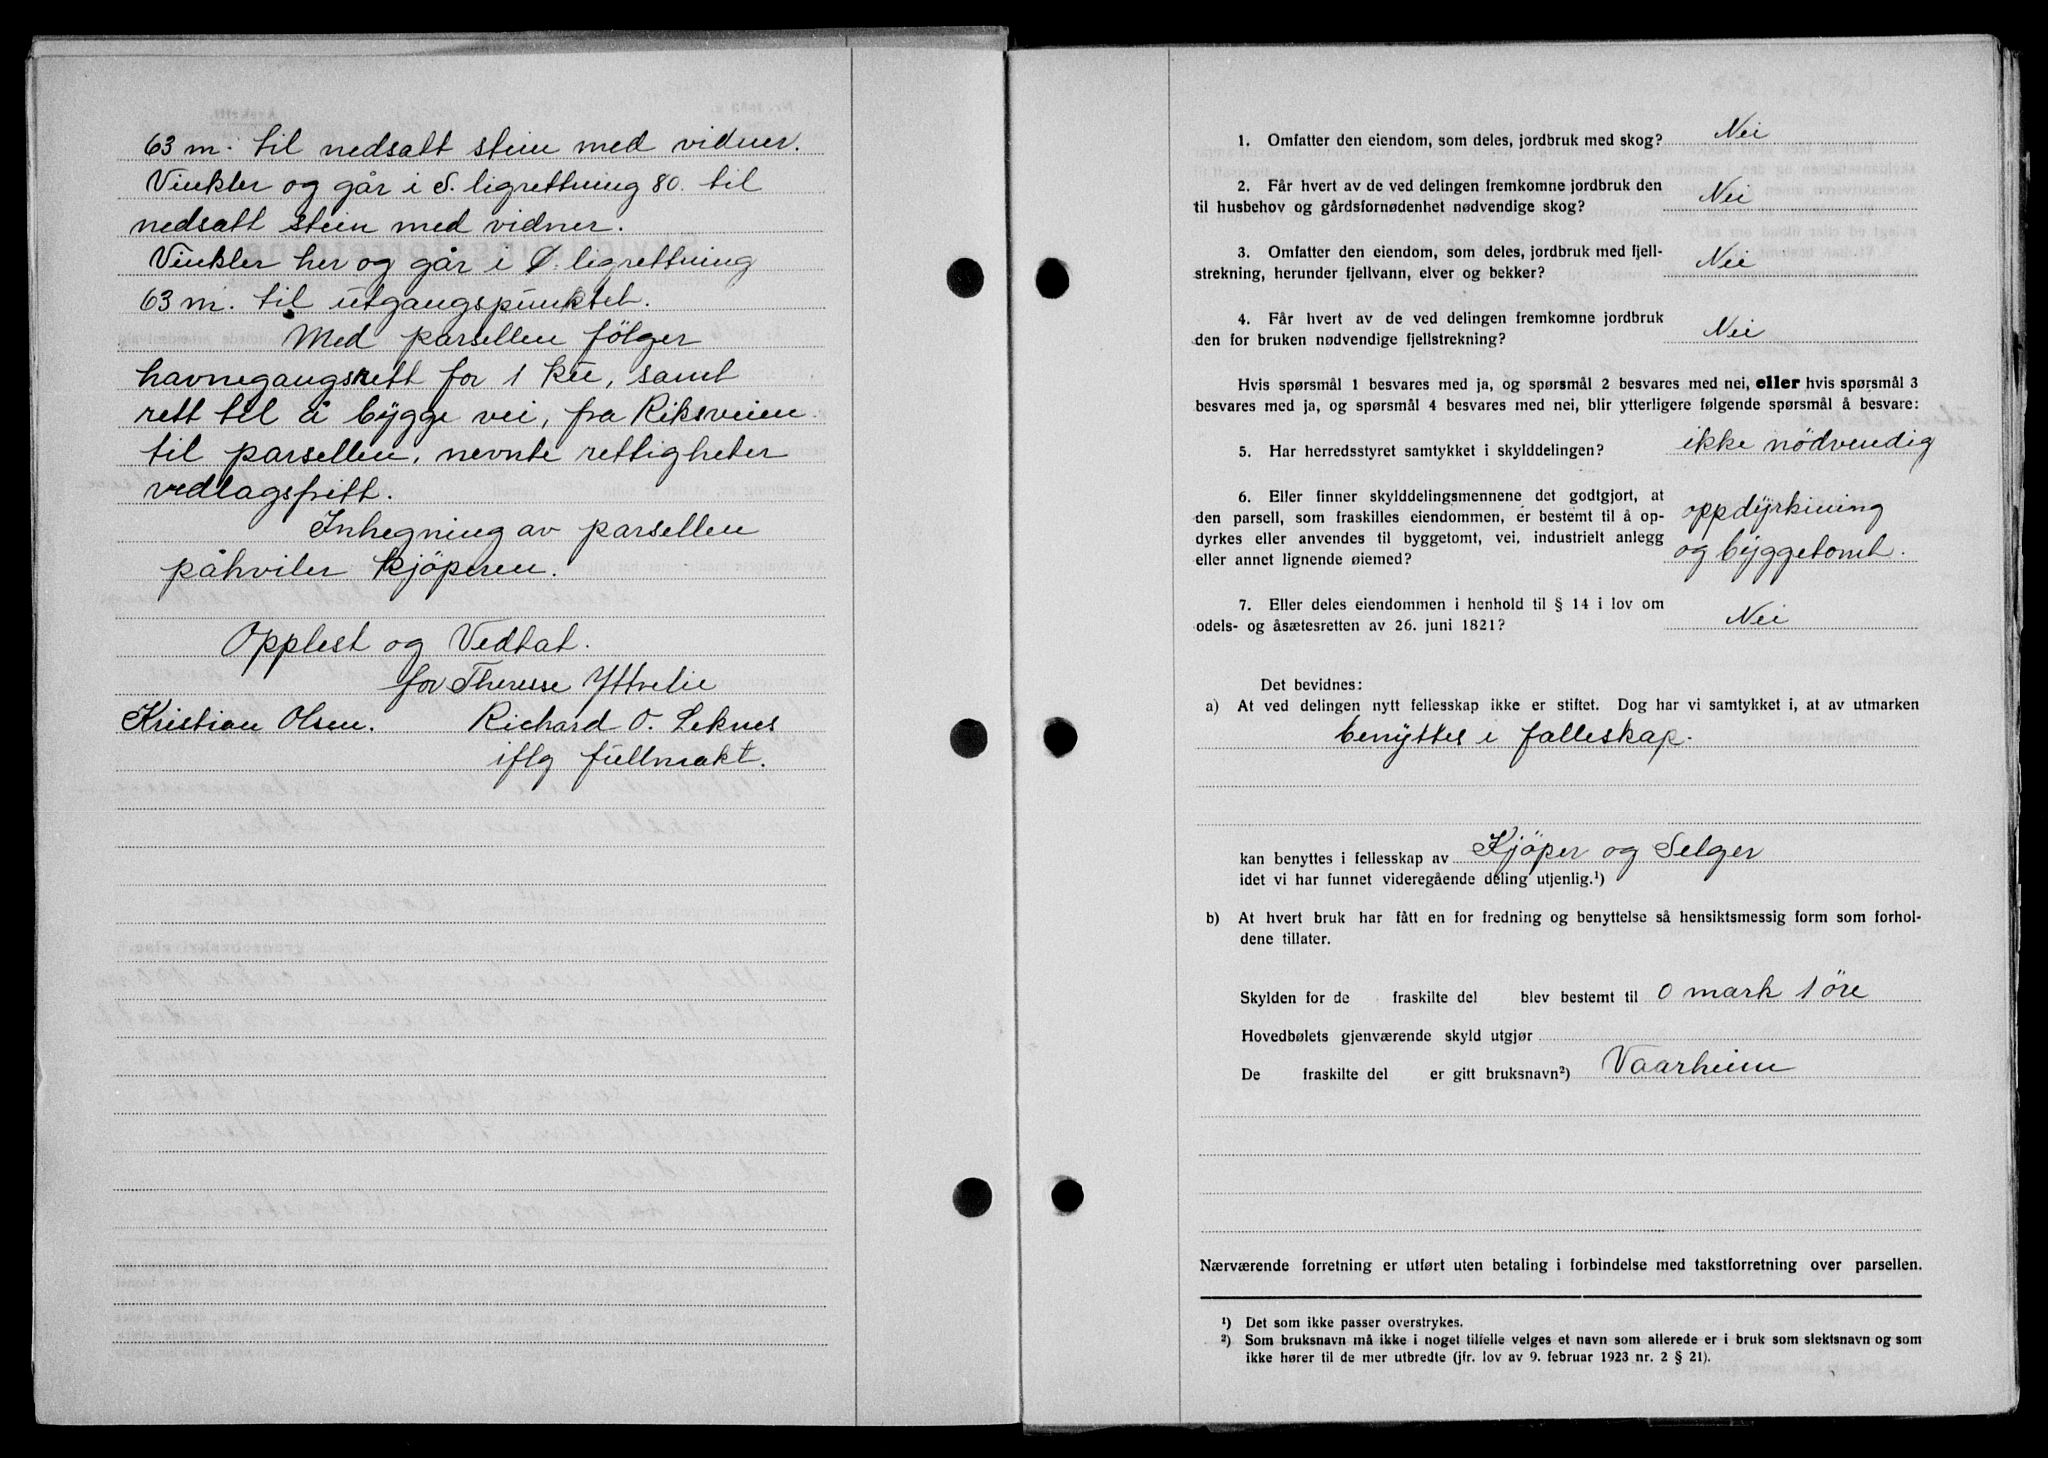 63 m. til nedsatt stein med vidner.
Vinkler og går i S. ligrettning 80. til
nedsatt stein med vidner.
Vinkler her og går i Ø. ligrettning
63 m. til utgangspunktet.
Med parsellen følger
havnegangsrett for 1 ku, samt
rett til å bygge vei, fra Riksveien
til parsellen, nevnte rettigheter
vedlagsfritt.
Inhegning av parsellen
påhviler kjøperen.
Opplest og Vedtat.
for Therese Yttrelie
Kristian Olsen. Richard O. Leknes
iflg fullmakt.
1. Omfatter den eiendom, som deles, jordbruk med skog? Nei
2. Får hvert av de ved delingen fremkomne jordbruk den
til husbehov og gårdsfornødenhet nødvendige skog? Nei
3. Omfatter den eiendom, som deles, jordbruk med fjell-
strekning, herunder fjellvann, elver og bekker? Nei
4. Får hvert av de ved delingen fremkomne jordbruk
den for bruken nødvendige fjellstrekning? Nei
Hvis spørsmål 1 besvares med ja, og spørsmål 2 besvares med nei, eller hvis spørsmål 3
besvares med ja, og spørsmål 4 besvares med nei, blir ytterligere følgende spørsmål å besvare:
5. Har herredsstyret samtykket i skylddelingen? ikke nødvendig
6. Eller finner skylddelingsmennene det godtgjort, at
den parsell, som fraskilles eiendommen, er bestemt til å op- oppdyrkining
dyrkes eller anvendes til byggetomt, vei, industrielt anlegg
eller annet lignende øiemed? og byggetomt.
7. Eller deles eiendommen i henhold til § 14 i lov om
odels- og åsætesretten av 26. juni 1821? Nei
Det bevidnes:
a) At ved delingen nytt fellesskap ikke er stiftet. Dog har vi samtykket i, at av utmarken
benyttes i falleskap.
kan benyttes i fellesskap av Kjøper og Selger
idet vi har funnet videregående deling utjenlig.¹)
b) At hvert bruk har fått en for fredning og benyttelse så hensiktsmessig form som forhol-
dene tillater.
Skylden for de fraskilte del blev bestemt til 0 mark 1 öre
Hovedbølets gjenværende skyld utgjør
De fraskilte del er gitt bruksnavn²) Vaarheim
Nærværende forretning er utført uten betaling i forbindelse med takstforretning over parsellen.
¹) Det som ikke passer overstrykes.
²) Som bruksnavn må ikke i noget tilfelle velges et navn som allerede er i bruk som slektsnavn og som
ikke hører til de mer utbredte (jfr. lov av 9. februar 1923 nr. 2 § 21).